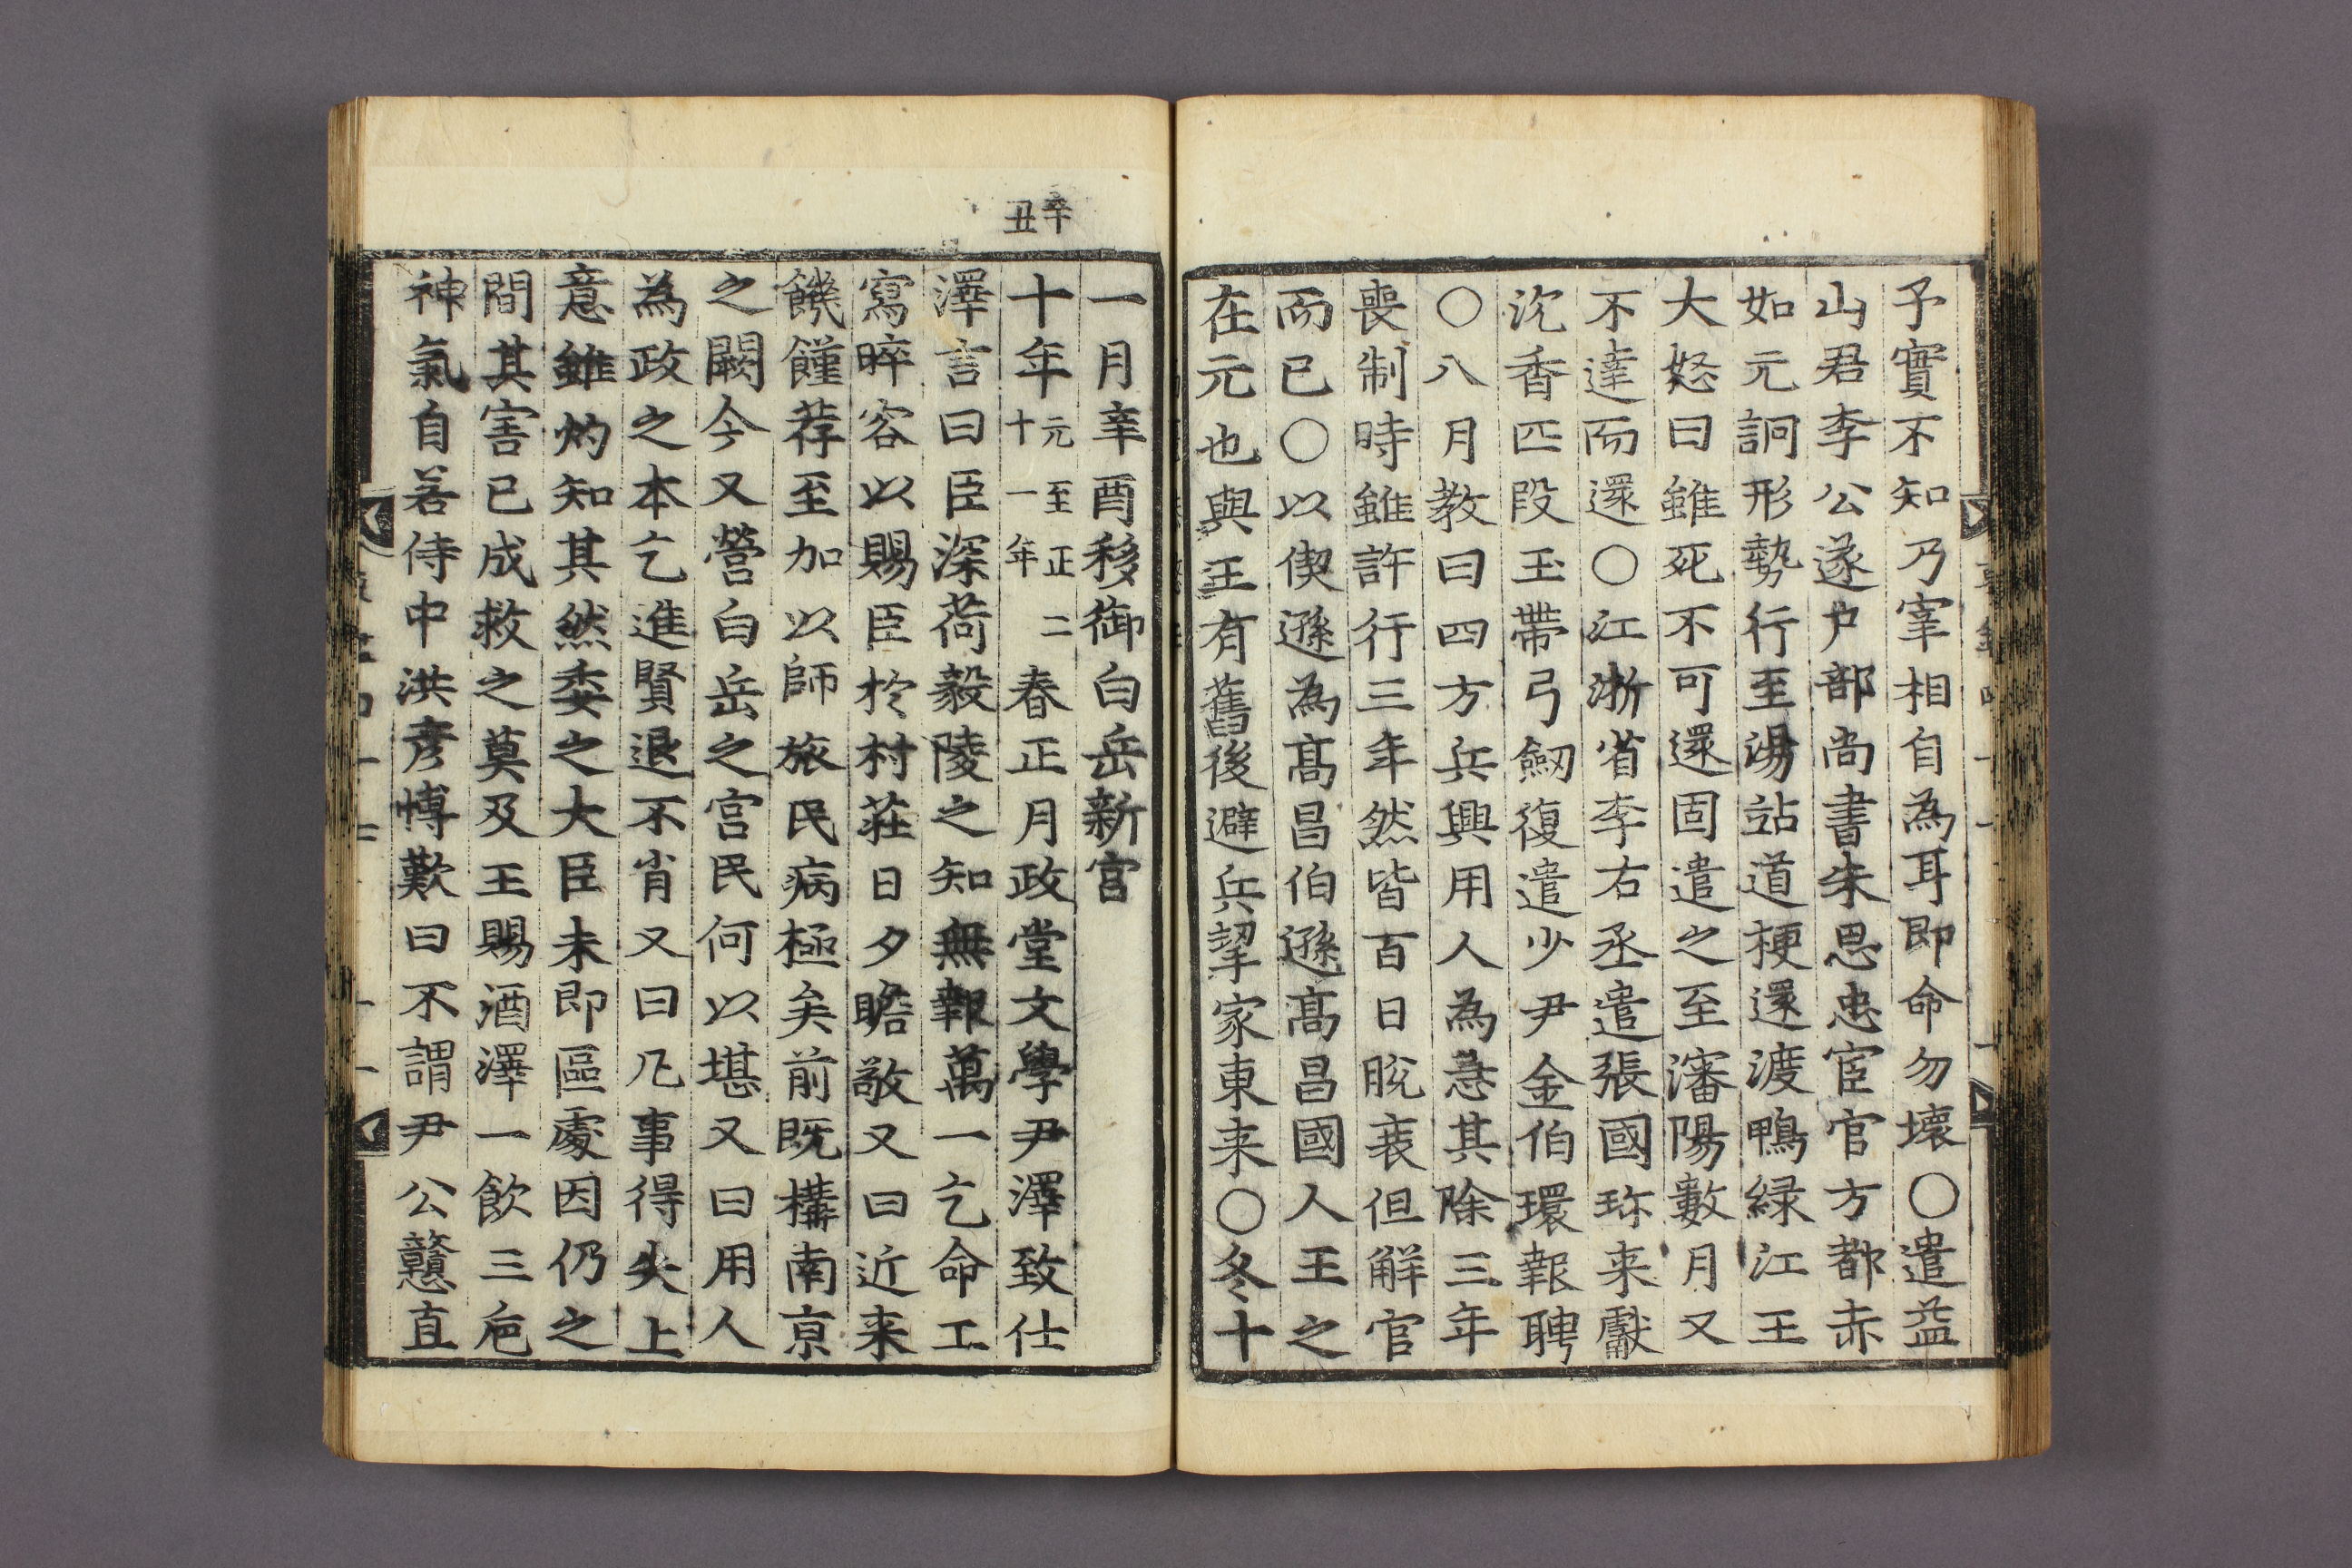 予實不知乃宰相自為耳即命勿壞○遣益
山君李公遂户部尚書朱思忠宦官方都赤
如元詗形勢行至湯站道梗還渡鴨綠江王
大怒曰雖死不可還固遣之至瀋陽數月又
不達而還○江浙省李右丞遣張國珎来獻
沈香匹段玉帶弓劔復遣少尹金伯環報聘
○八月教曰四方兵興用人為急其除三年
喪制時雖許行三年然皆百日脫衰但解官
而已○以偰遜為髙昌伯遜髙昌國人王之
在元也與王有舊後避兵挈家東来○冬十
一月辛酉移御白岳新宮
辛丑
十年元至正二十一年春正月政堂文學尹澤致仕
澤言曰臣深荷毅陵之知無報萬一乞命工
寫晬容以賜臣於村莊日夕瞻敬又曰近来
饑饉荐至加以師旅民病極矣前既構南京
之闕今又營白岳之宮民何以堪又曰用人
為政之本乞進賢退不肖又曰凡事得失上
意雖灼知其然委之大臣未即區處因仍之
間其害已成救之莫及王賜酒澤一飲三巵
神氣自若侍中洪彦博歎曰不謂尹公戇直